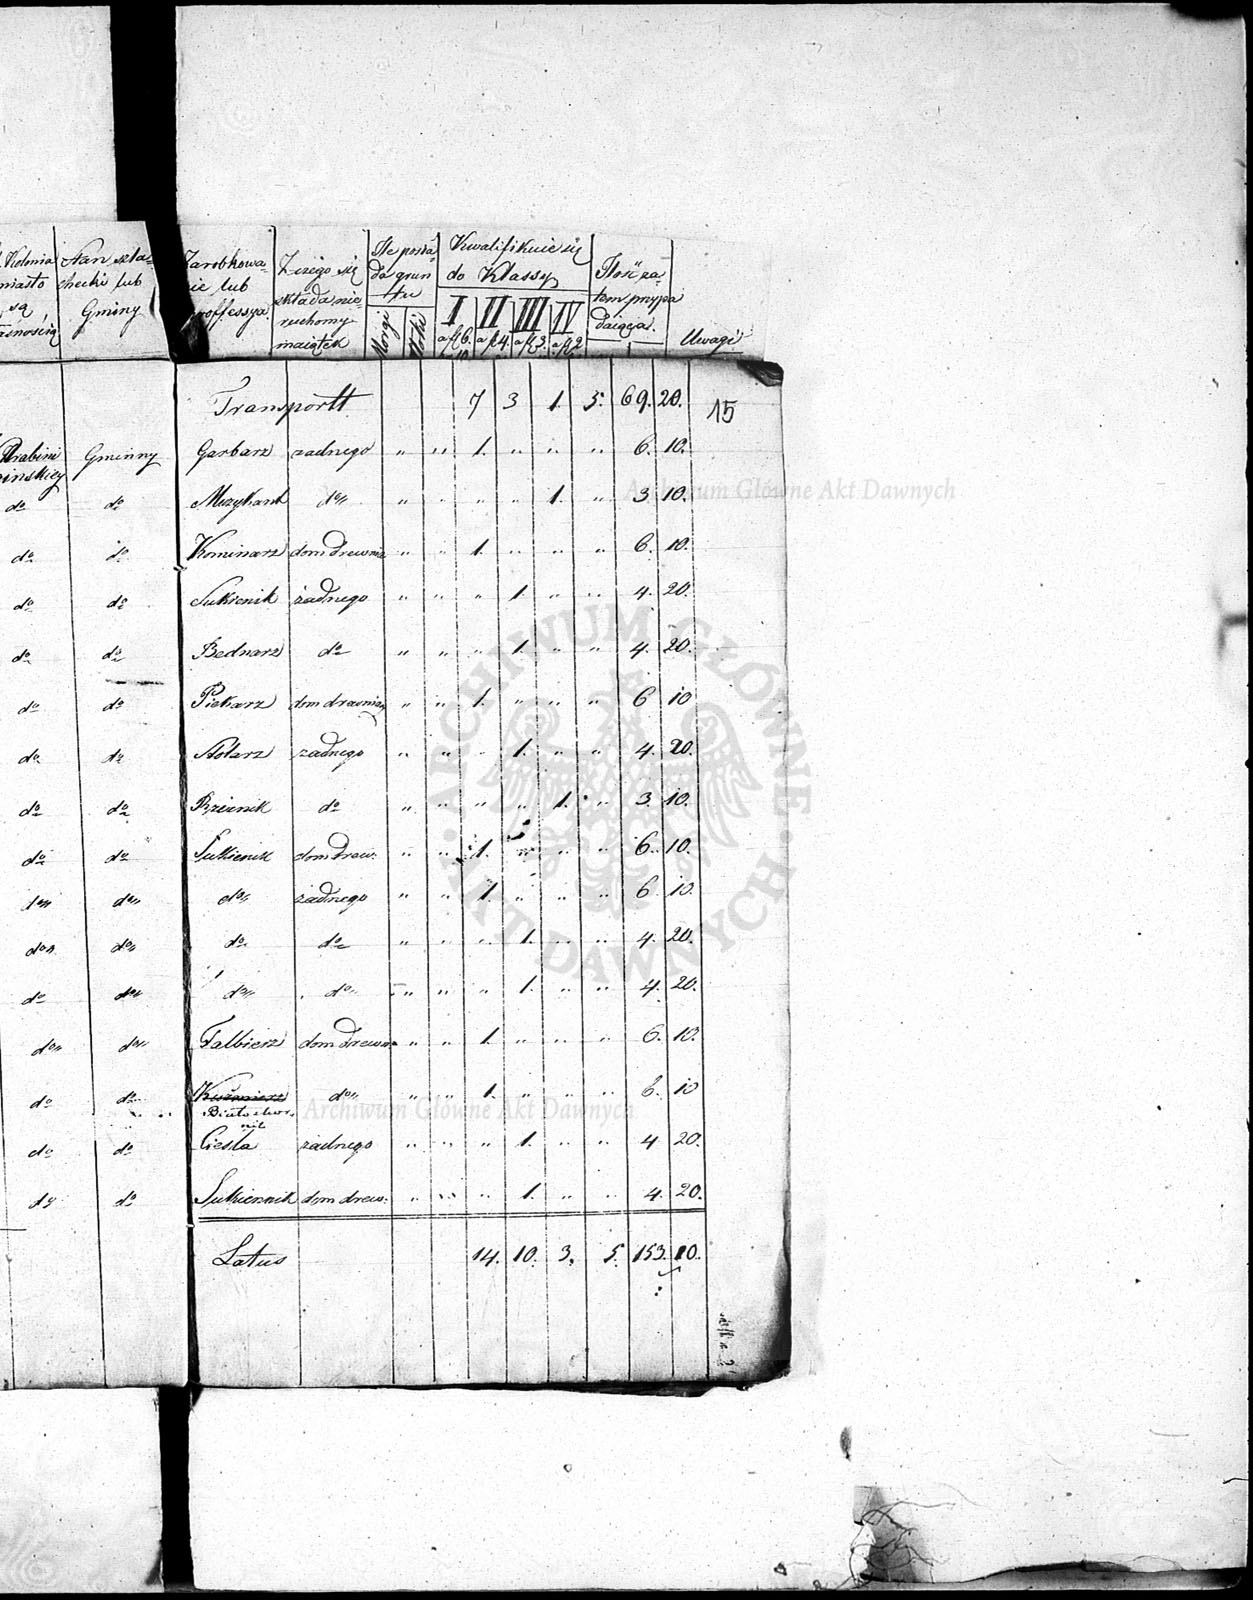 Kolonia
miasto
są
Stan szla-
checki lub
Gminy
Zarobkowa-
nie lub
proffessya
Z czego się
składa nie-
ruchomy
maiątek
Ile posia
da grun
tu
Morgi
Kwalifikuie się
do Klassy
I II III IV
a fl 6. a fl 4. a fl 3. a fl 2.
10
Ilość za
tem przypa
daiąca
Uwagi
Transportt 7 3 1. 5. 69. 20. 15
Hrabini Gminny Garbarz żadnego " " 1. " " " 6. 10.
do do Muzykant do " " " " 1. " 3 10.
do do Kominarz dom drewnia " " 1. " " " 6. 10.
do do Sukienik żadnego " " " 1. " " 4. 20.
do do Bednarz do " " " 1. " " 4. 20.
do do Piekarz dom drewnian " " 1. " " " 6 10
do do Stolarz żadnego " " " 1. " " 4. 20.
do do Rzeznik do " " " " 1. " 3. 10.
do do Sukienik dom drew. " " 1. " " " 6. 10.
do do do żadnego " " 1. " " " 6. 10.
do do do do " " " 1. " " 4. 20.
do do do do " " " 1. " " 4. 20.
do do Falbierz dom drewn " " 1. " " " 6. 10.
do do Kuśnierz do " " 1. " " " 6. 10
Białoskur
nik
do do Ciesla żadnego " " " 1. " " 4 20.
do do Sukiennik dom drew. " " " 1. " " 4. 20.
Latus 14. 10. 3. 5. 153. 10.
Archiwum Główne Akt Dawnych
ARCHIWUM GŁÓWNE AKT DAWNYCH
Archiwum Główne Akt Dawnych